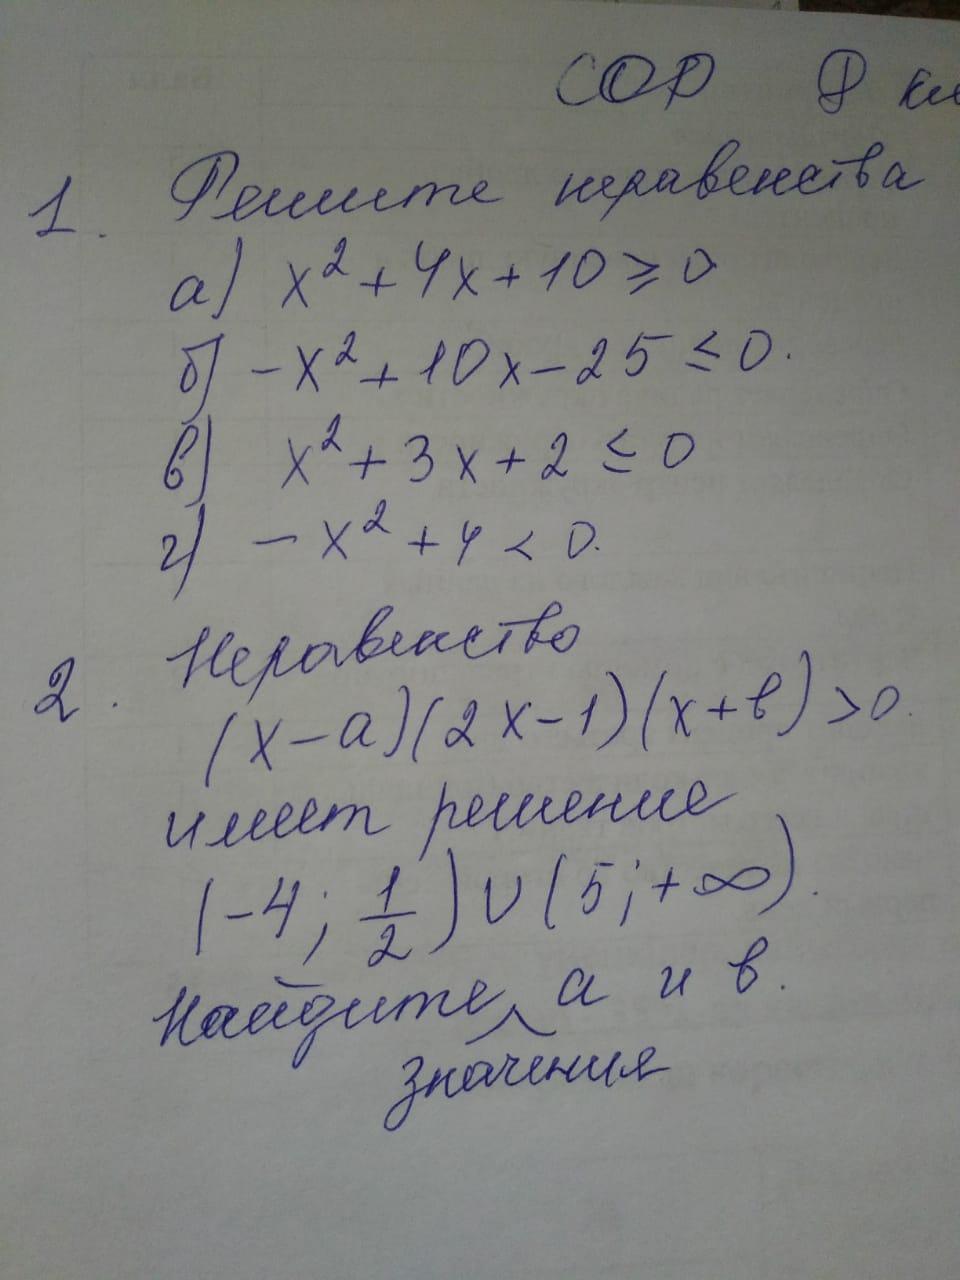 СОР 8 кл
1. Решите неравенства
а) x² + 4x + 10 ≥ 0
б) -x² + 10x - 25 ≤ 0.
в) x² + 3x + 2 ≤ 0
г) -x² + 4 < 0.
2. Неравенство
(x - a)(2x - 1)(x + b) > 0.
имеет решение
(-4; 1/2) ∪ (5; +∞).
Найдите a и b.
значения